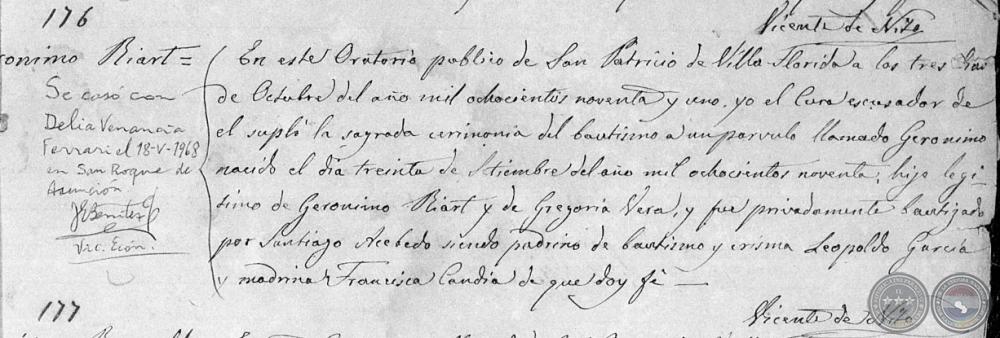 176
Vicente de Nito
onimo Riart =
En este Oratorio publico de San Patricio de Villa Florida a los tres dias
de Octubre del año mil ochocientos noventa y uno, yo el Cura escusador de
el suplí la sagrada cerimonia del bautismo a un parvulo llamado Geronimo
nacido el dia treinta de Setiembre del año mil ochocientos noventa, hijo legi-
timo de Geronimo Riart y de Gregoria Vera, y fue privadamente bautizado
por Santiago Acebedo siendo padrino de bautismo y crisma Leopoldo Garcia
y madrina Francisca Candia de que doy fé —
Se casó con
Delia Venancia
Ferrari el 18-V-1968
en San Roque de
Asunción
JEBenitez
Vic. Ecón.
177
Vicente de Nito